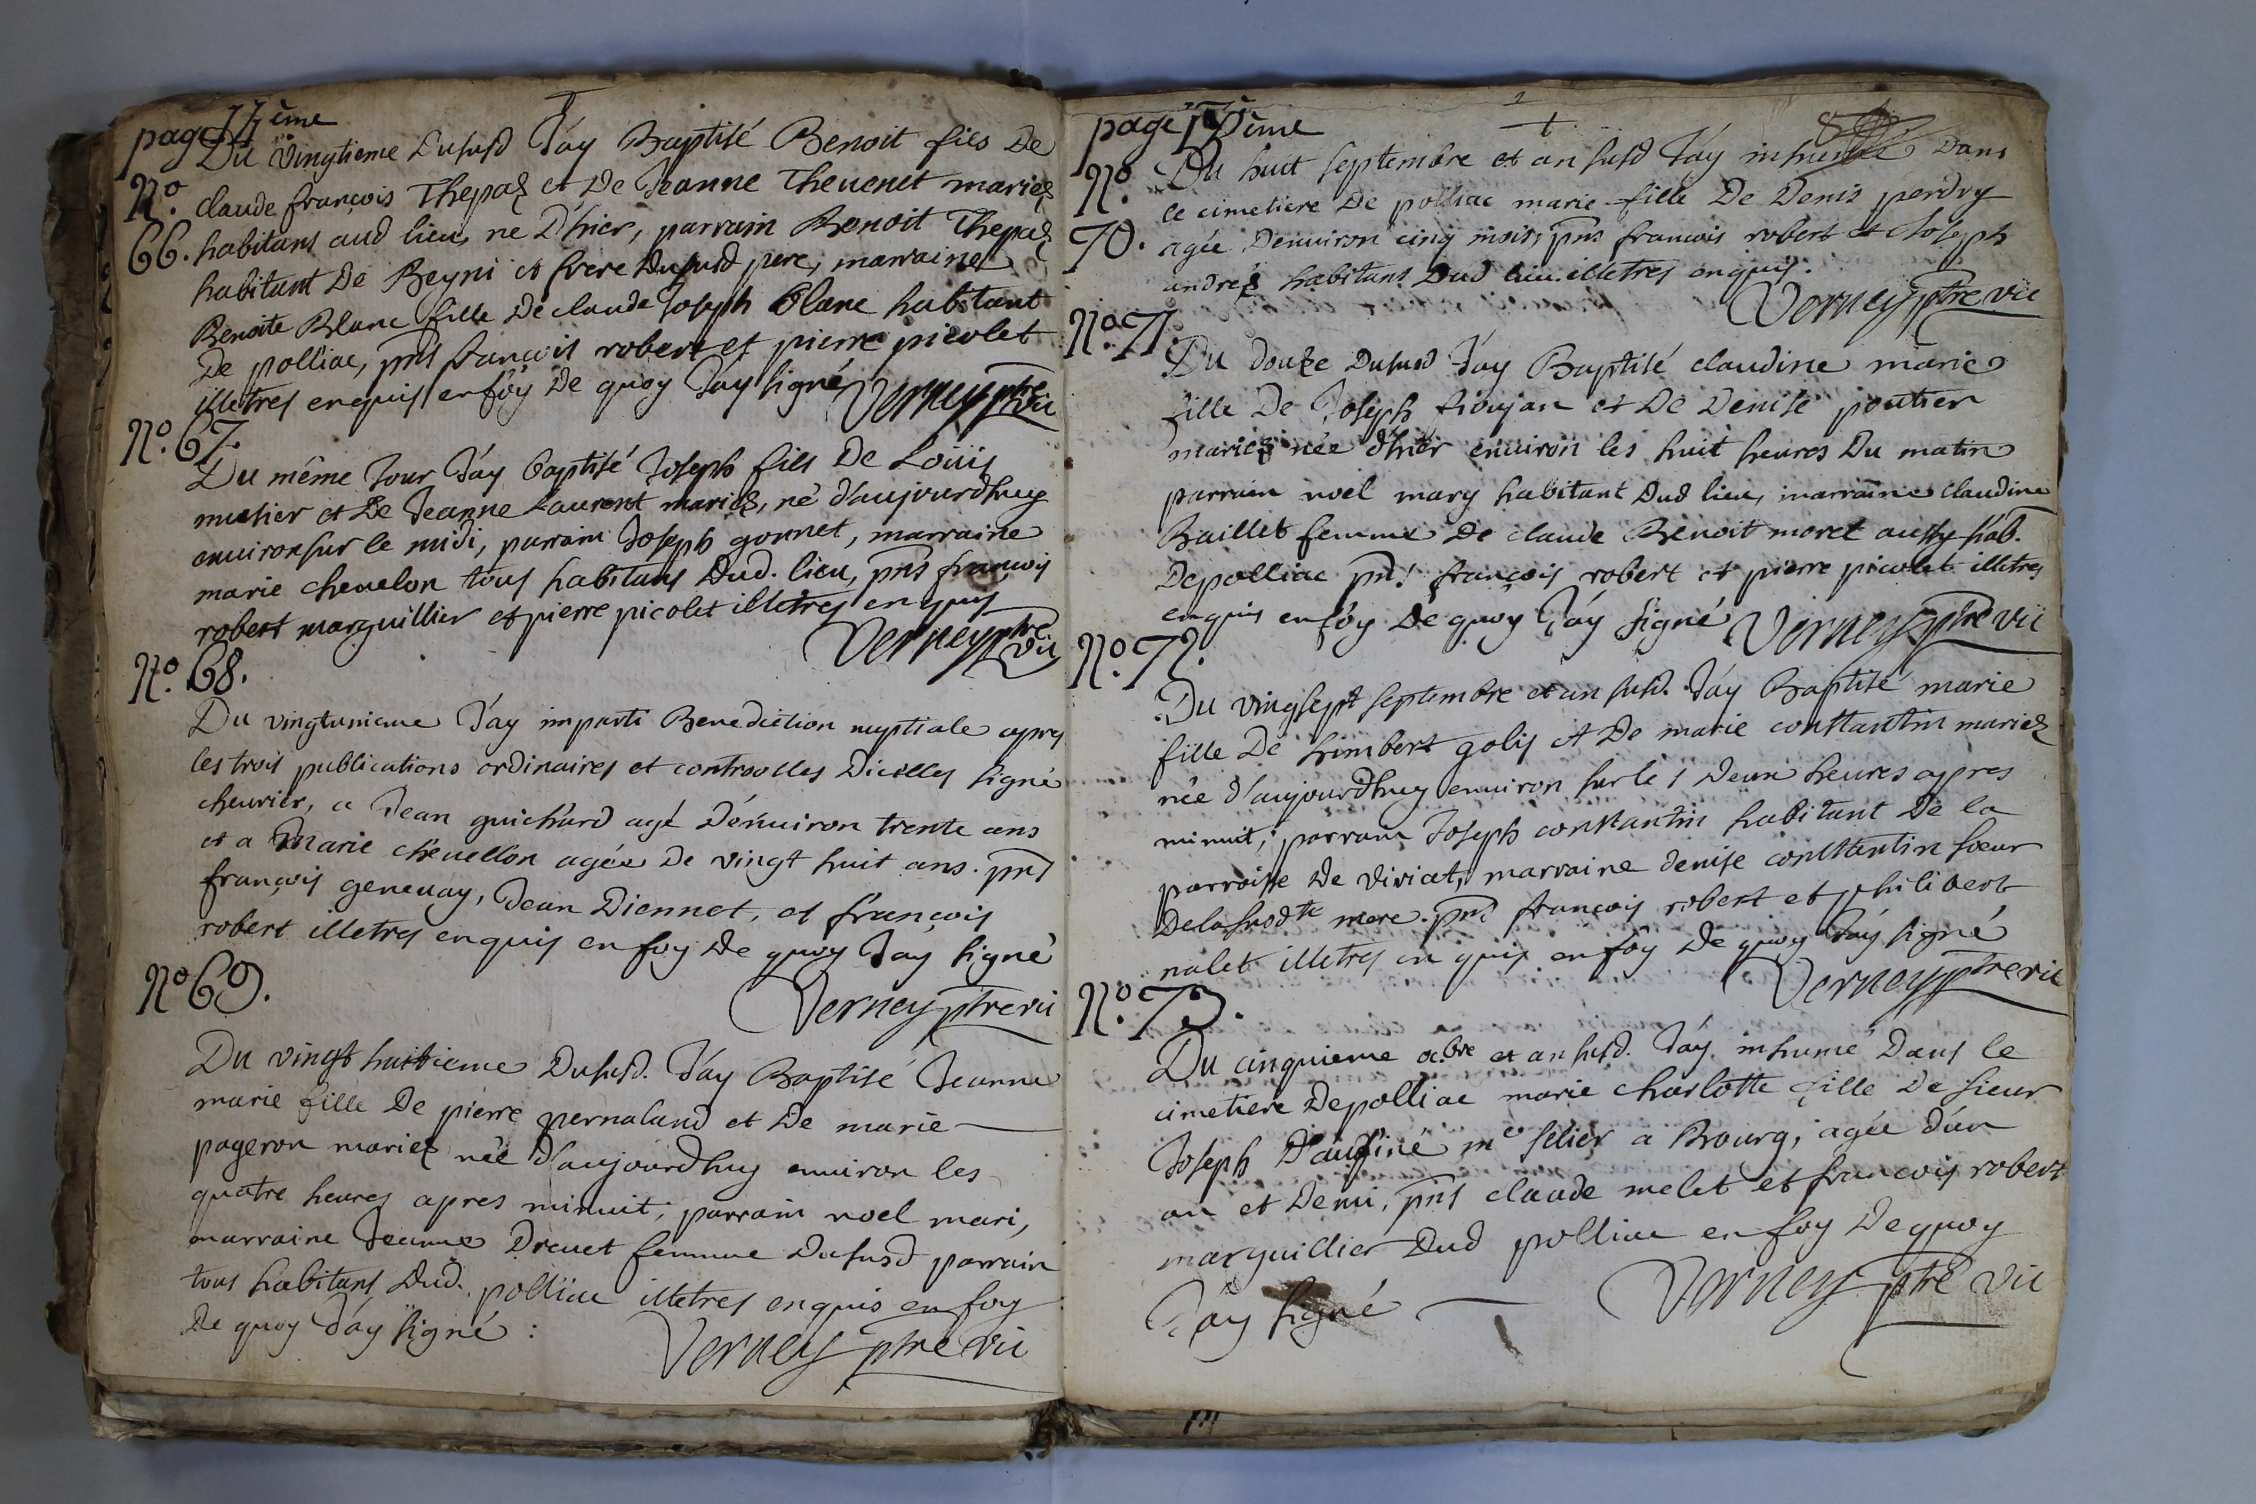 page 14ème
Du vingtieme Dususd Jáy Baptisé Benoit fils De
N.º claude françois Thepaz et De Jeanne Thevenet mariez
66. habitans aud lieu, ne D'hier, parrain Benoit Thepaz
habitant De Beyni et frere Dususd pere, marraine
Benoite Blanc fille De claude Joseph Blanc habitant
De polliac, pns françois robert et pierre picolet
illetres enquis en foy De quoy Jáy signé Verney ptre vic
N.º 67.
Du même Jour Jáy baptisé Joseph fils De Louis
mutier et De Jeanne Laurent mariez, né d'aujourdhuy
environ sur le midi, parrain Joseph gonnet, marraine
marie chevelon tous habitans Dud. lieu, pns françois
robert marguillier et pierre picolet illetres enquis
Verney ptre vic
N.º 68.
Du vingtunieme Jáy imparti Benediction nuptiale apres
les trois publications ordinaires et controolles Dicelles signé
chevrier, a Jean guichard agé D'environ trente ans
et a Marie chevellon agée De vingt huit ans. pns
françois genevay, Jean Diennet, et françois
robert illetres enquis en foy De quoy Jay signé
N.º 69.
Verney ptre vic
Du vingt huitieme Dususd. Jáy Baptisé Jeanne
marie fille De pierre pernaland et De marie
pageron mariez née d'aujourdhuy environ les
quatre heures apres minuit, parrain noel mari,
marraine Jeanne Drevet femme Dususd parrain
tous habitans Dud. polliac illetres enquis en foy
De quoy Jáy signé :
Verney ptre vic
page 15ème
Du huit septembre et an susd Jáy inhumé Dans
N.º le cimetiere De polliac marie fille De Denis perdry
70. agée Denviron cinq mois, pns françois robert et Joseph
andrez habitans Dud lieu illetres enquis.
Verney ptre vic
N.º 71.
Du douze Dususd Jáy Baptisé claudine marie
fille De Joseph Goujan et De Denise poutier
mariez née d'hier environ les huit heures Du matin
parrain noel mary habitant Dud lieu, marraine claudine
Baillet femme De claude Benoit moret aussy hab.
De polliac pns françois robert et pierre picolet illetres
enquis en foy De quoy Jáy signé Verney ptre vic
N.º 72.
Du vingsept septembre et an susd. Jáy Baptisé marie
fille De humbert golis et De marie constantin mariez
née d'aujourdhuy environ sur les Deux heures apres
minuit, parrain Joseph constantin habitant De la
parroisse De viriat, marraine denise constantin soeur
De la susdte mere. pns françois robert et philibert
nalet illetres en quis en foy De quoy Jáy signé
Verney ptre vic
N.º 73.
Du cinquieme 8.bre et an susd. Jáy inhumé Dans le
cimetiere De polliac marie charlotte fille De sieur
Joseph D'aufiné me selier a Bourg, agée d'un
an et Demi, pns claude melet et françois robert
marguillier Dud polliac en foy De quoy
Jáy signé Verney ptre vic